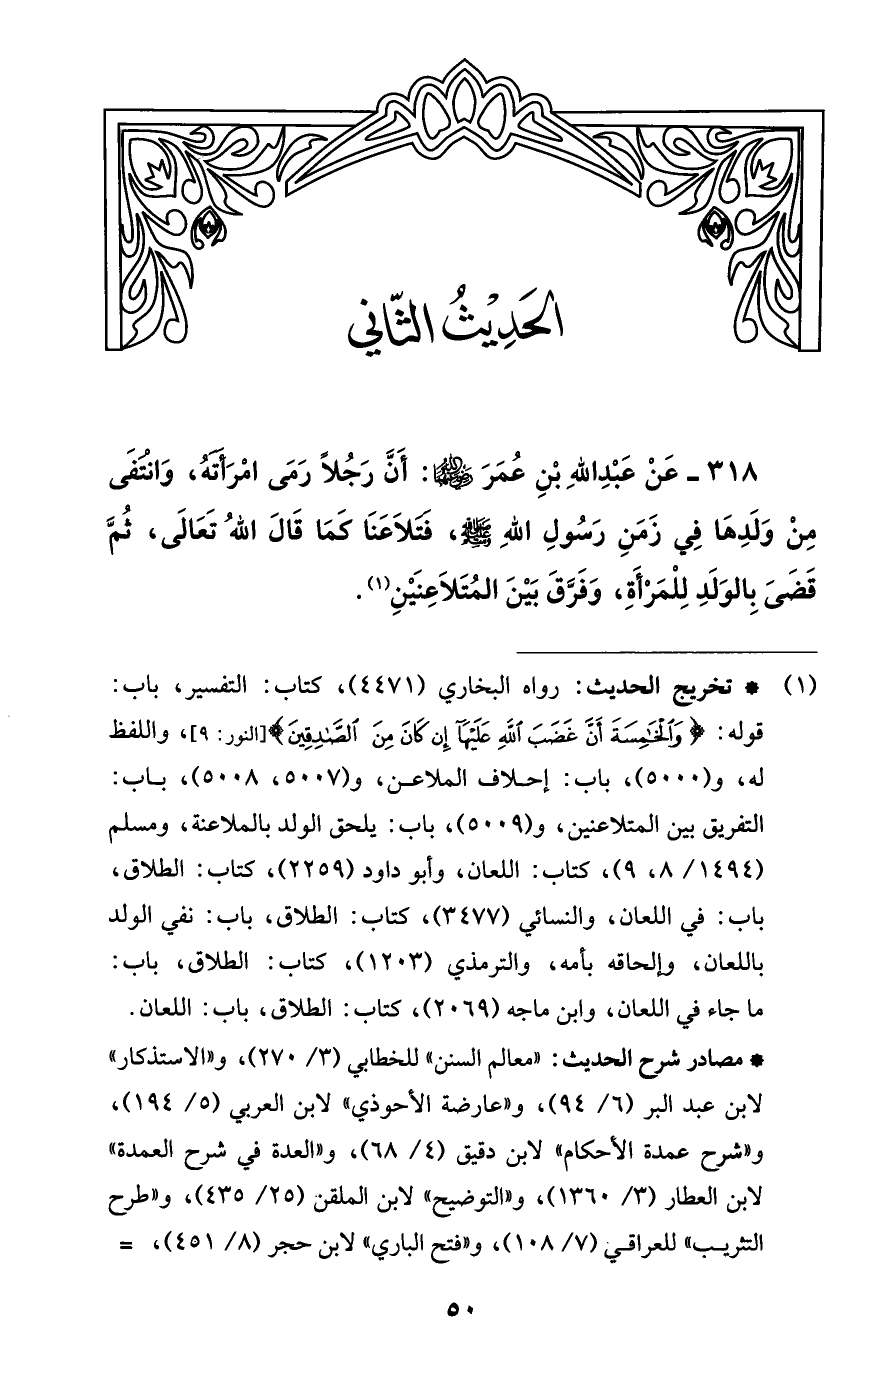 الحَدِيْثُ الثَّاني
٣١٨ ـ عَنْ عَبْدِاللهِ بْنِ عُمَرَ ﵄: أَنَّ رَجُلاً رَمَى امْرَأَتَهُ، وَانْتَفَى
مِنْ وَلَدِهَا فِي زَمَنِ رَسُولِ اللهِ ﷺ، فَتَلاَعَنَا كَمَا قَالَ اللهُ تَعَالَى، ثُمَّ
قَضَىَ بِالوَلَدِ لِلْمَرْأَةِ، وَفَرَّقَ بَيْنَ المُتَلاَعِنَيْنِ(١).
(١) * تخريج الحديث: رواه البخاري (٤٤٧١)، كتاب: التفسير، باب:
قوله: ﴿ وَٱلْخَٰمِسَةَ أَنَّ غَضَبَ ٱللَّهِ عَلَيْهَآ إِن كَانَ مِنَ ٱلصَّٰدِقِينَ﴾[النور: ٩]، واللفظ
له، و(٥٠٠٠)، باب: إحلاف الملاعن، و(٥٠٠٧، ٥٠٠٨)، باب:
التفريق بين المتلاعنين، و(٥٠٠٩)، باب: يلحق الولد بالملاعنة، ومسلم
(١٤٩٤/ ٨، ٩)، كتاب: اللعان، وأبو داود (٢٢٥٩)، كتاب: الطلاق،
باب: في اللعان، والنسائي (٣٤٧٧)، كتاب: الطلاق، باب: نفي الولد
باللعان، وإلحاقه بأمه، والترمذي (١٢٠٣)، كتاب: الطلاق، باب:
ما جاء في اللعان، وابن ماجه (٢٠٦٩)، كتاب: الطلاق، باب: اللعان.
* مصادر شرح الحديث: «معالم السنن» للخطابي (٣/ ٢٧٠)، و«الاستذكار»
لابن عبد البر (٦/ ٩٤)، و«عارضة الأحوذي» لابن العربي (٥/ ١٩٤)،
و«شرح عمدة الأحكام» لابن دقيق (٤/ ٦٨)، و«العدة في شرح العمدة»
لابن العطار (٣/ ١٣٦٠)، و«التوضيح» لابن الملقن (٢٥/ ٤٣٥)، و«طرح
التثريب» للعراقي (٧/ ١٠٨)، و«فتح الباري» لابن حجر (٨/ ٤٥١)، =
٥٠